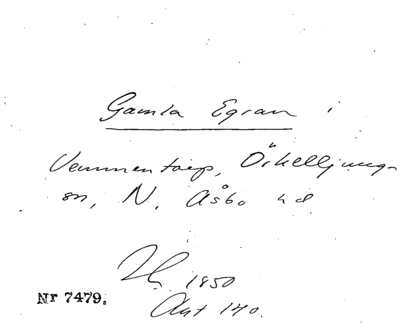 Gamla Egran i
Vemmentorp, Örkelljunga
sn, N. Åsbo hd
1850
Akt 140.
Nr 7479.